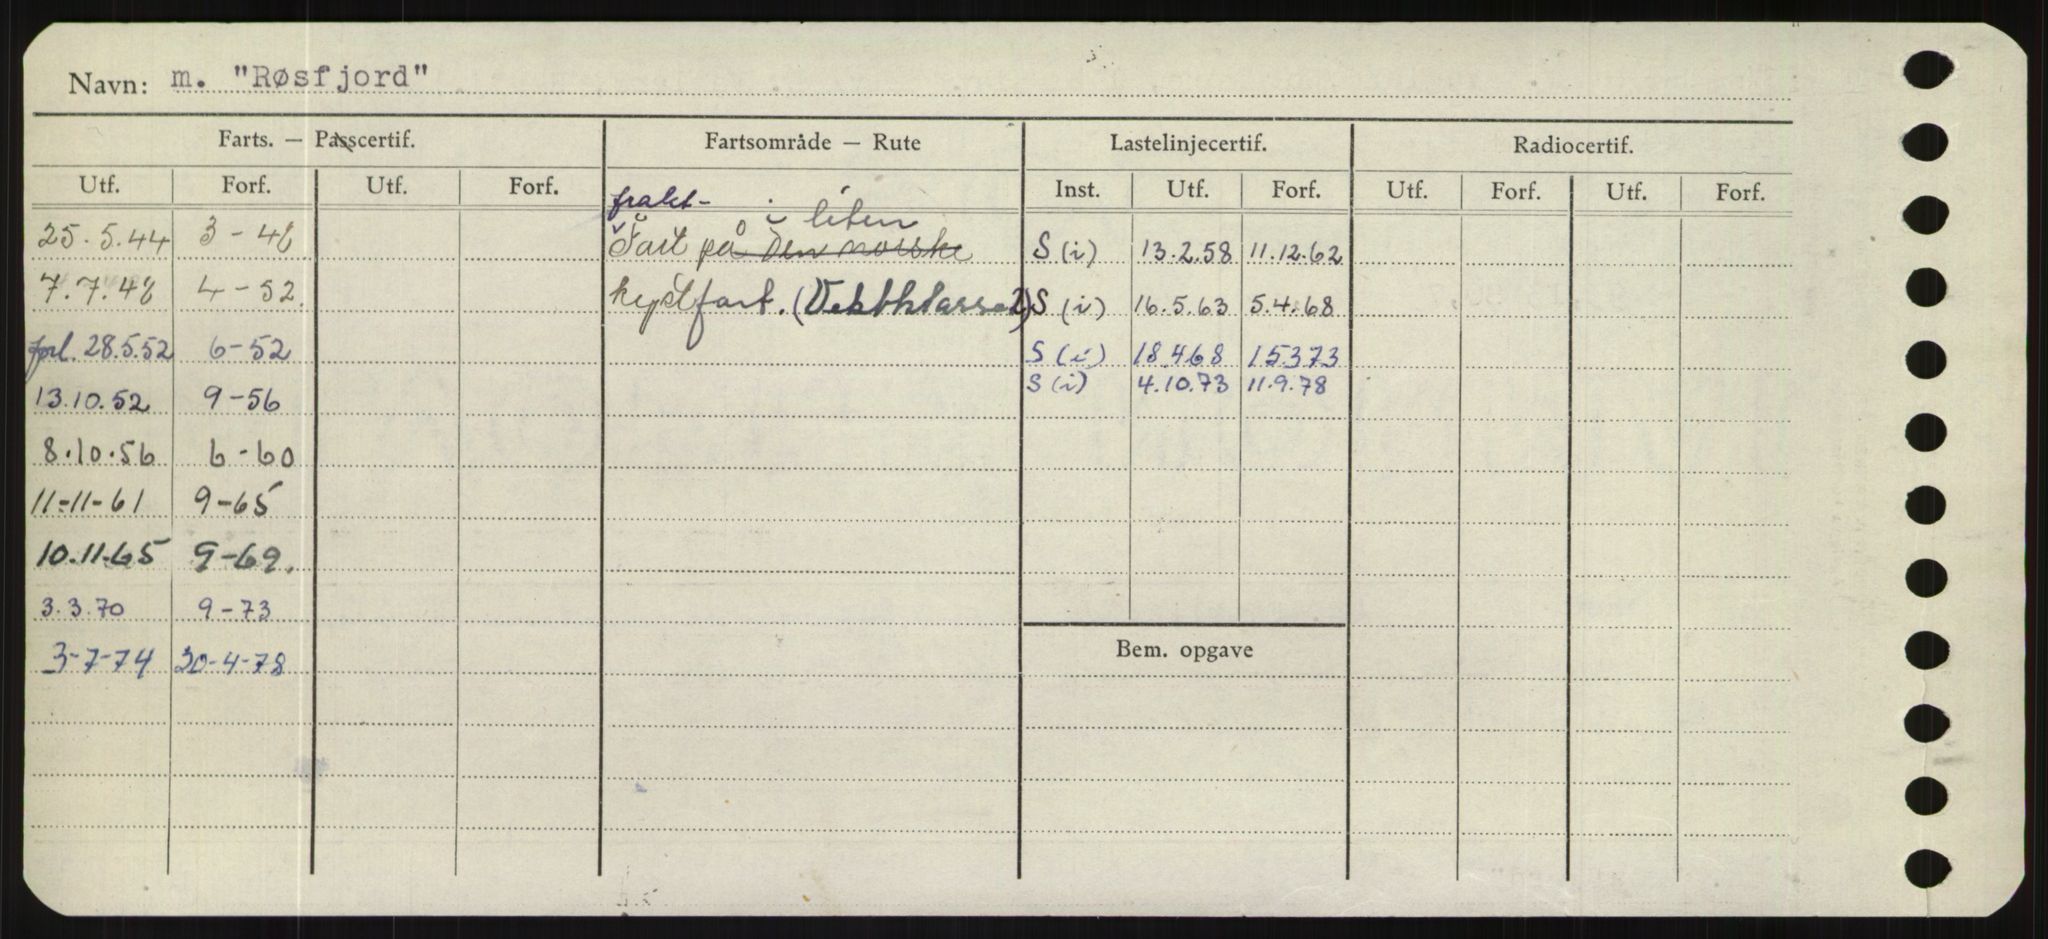 Navn: m. "Røsfjord"
Farts. — Passcertif. Fartsområde — Rute Lastelinjecertif. Radiocertif.
Utf. Forf. Utf. Forf. Inst. Utf. Forf. Utf. Forf. Utf. Forf.
frakt-
i liten
25.5.44 3-48 Fart på den norske S (i) 13.2.58 11.12.62
7.7.48 4-52. kystfart. (Vektklasse 2) S (i) 16.5.63 5.4.68
forl. 28.5.52 6-52 S (i) 18.4.68 15.3.73
S (i) 4.10.73 11.9.78
13.10.52 9-56
8.10.56 6-60
11-11-61 9-65
10.11.65 9-69.
3.3.70 9-73
3-7-74 30-4-78
Bem. opgave